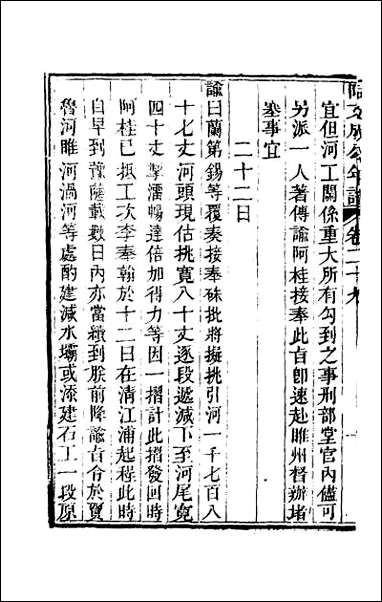 阿文成公年譜 卷二十九
宜但河工關係重大所有勾到之事刑部堂官內儘可
另派一人著傳諭阿桂接奉此旨卽速赴睢州督辦堵
築事宜
二十二日
諭曰蘭第錫等覆奏接奉硃批將擬挑引河一千七百八
十七丈河頭現估挑寬八十丈逐段遞減下至河尾寬
四十丈掣溜暢達倍加得力等因一摺計此摺發回時
阿桂已抵工次李奉翰於十二日在清江浦起程此時
自早到豫薩載數日內亦當續到朕前降諭旨令於賈
魯河睢河渦河等處酌建減水壩或添建石工一段原